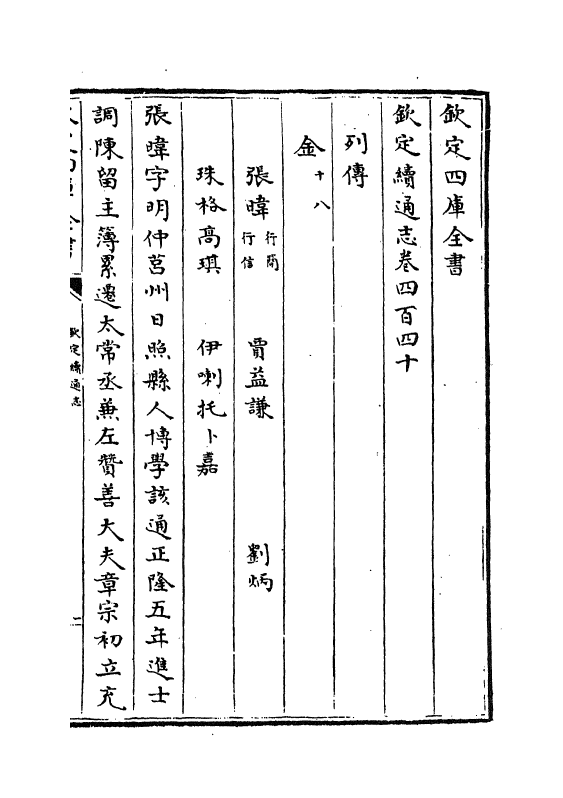 欽定四庫全書
欽定續通志卷四百四十
列傳
金十八
張暐 行簡 行信 賈益謙 劉炳
珠格高琪 伊喇托卜嘉
張暐字明仲莒州日照縣人博學該通正隆五年進士
調陳留主簿累遷太常丞兼左贊善大夫章宗初立充
欽定續通志